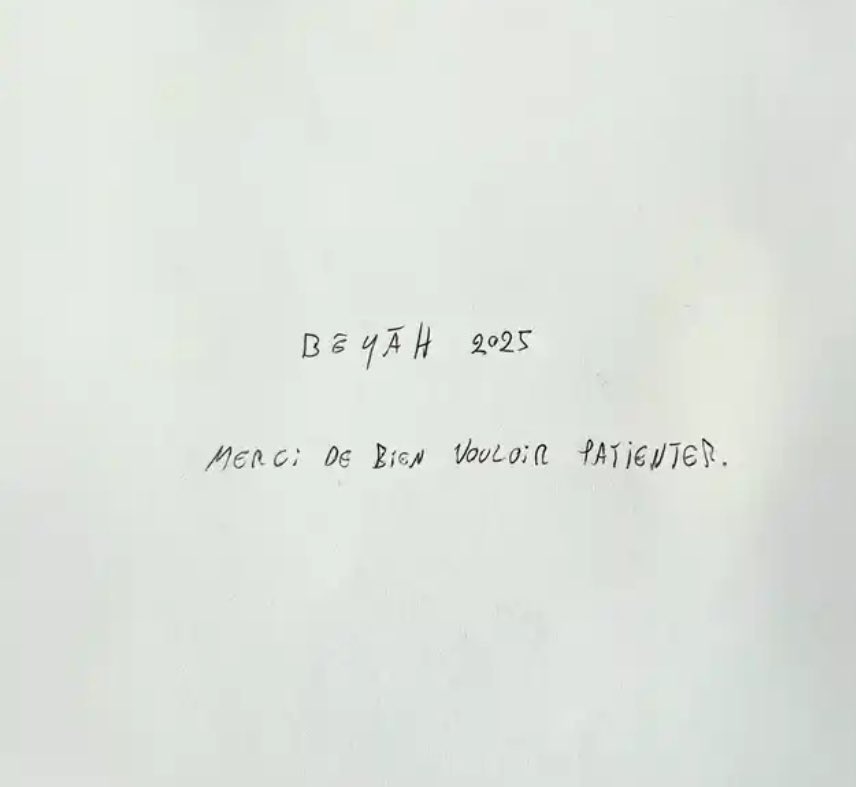 BĒYĀH 2025
MERCi DE BiEN VOULOiR PATiENTER.